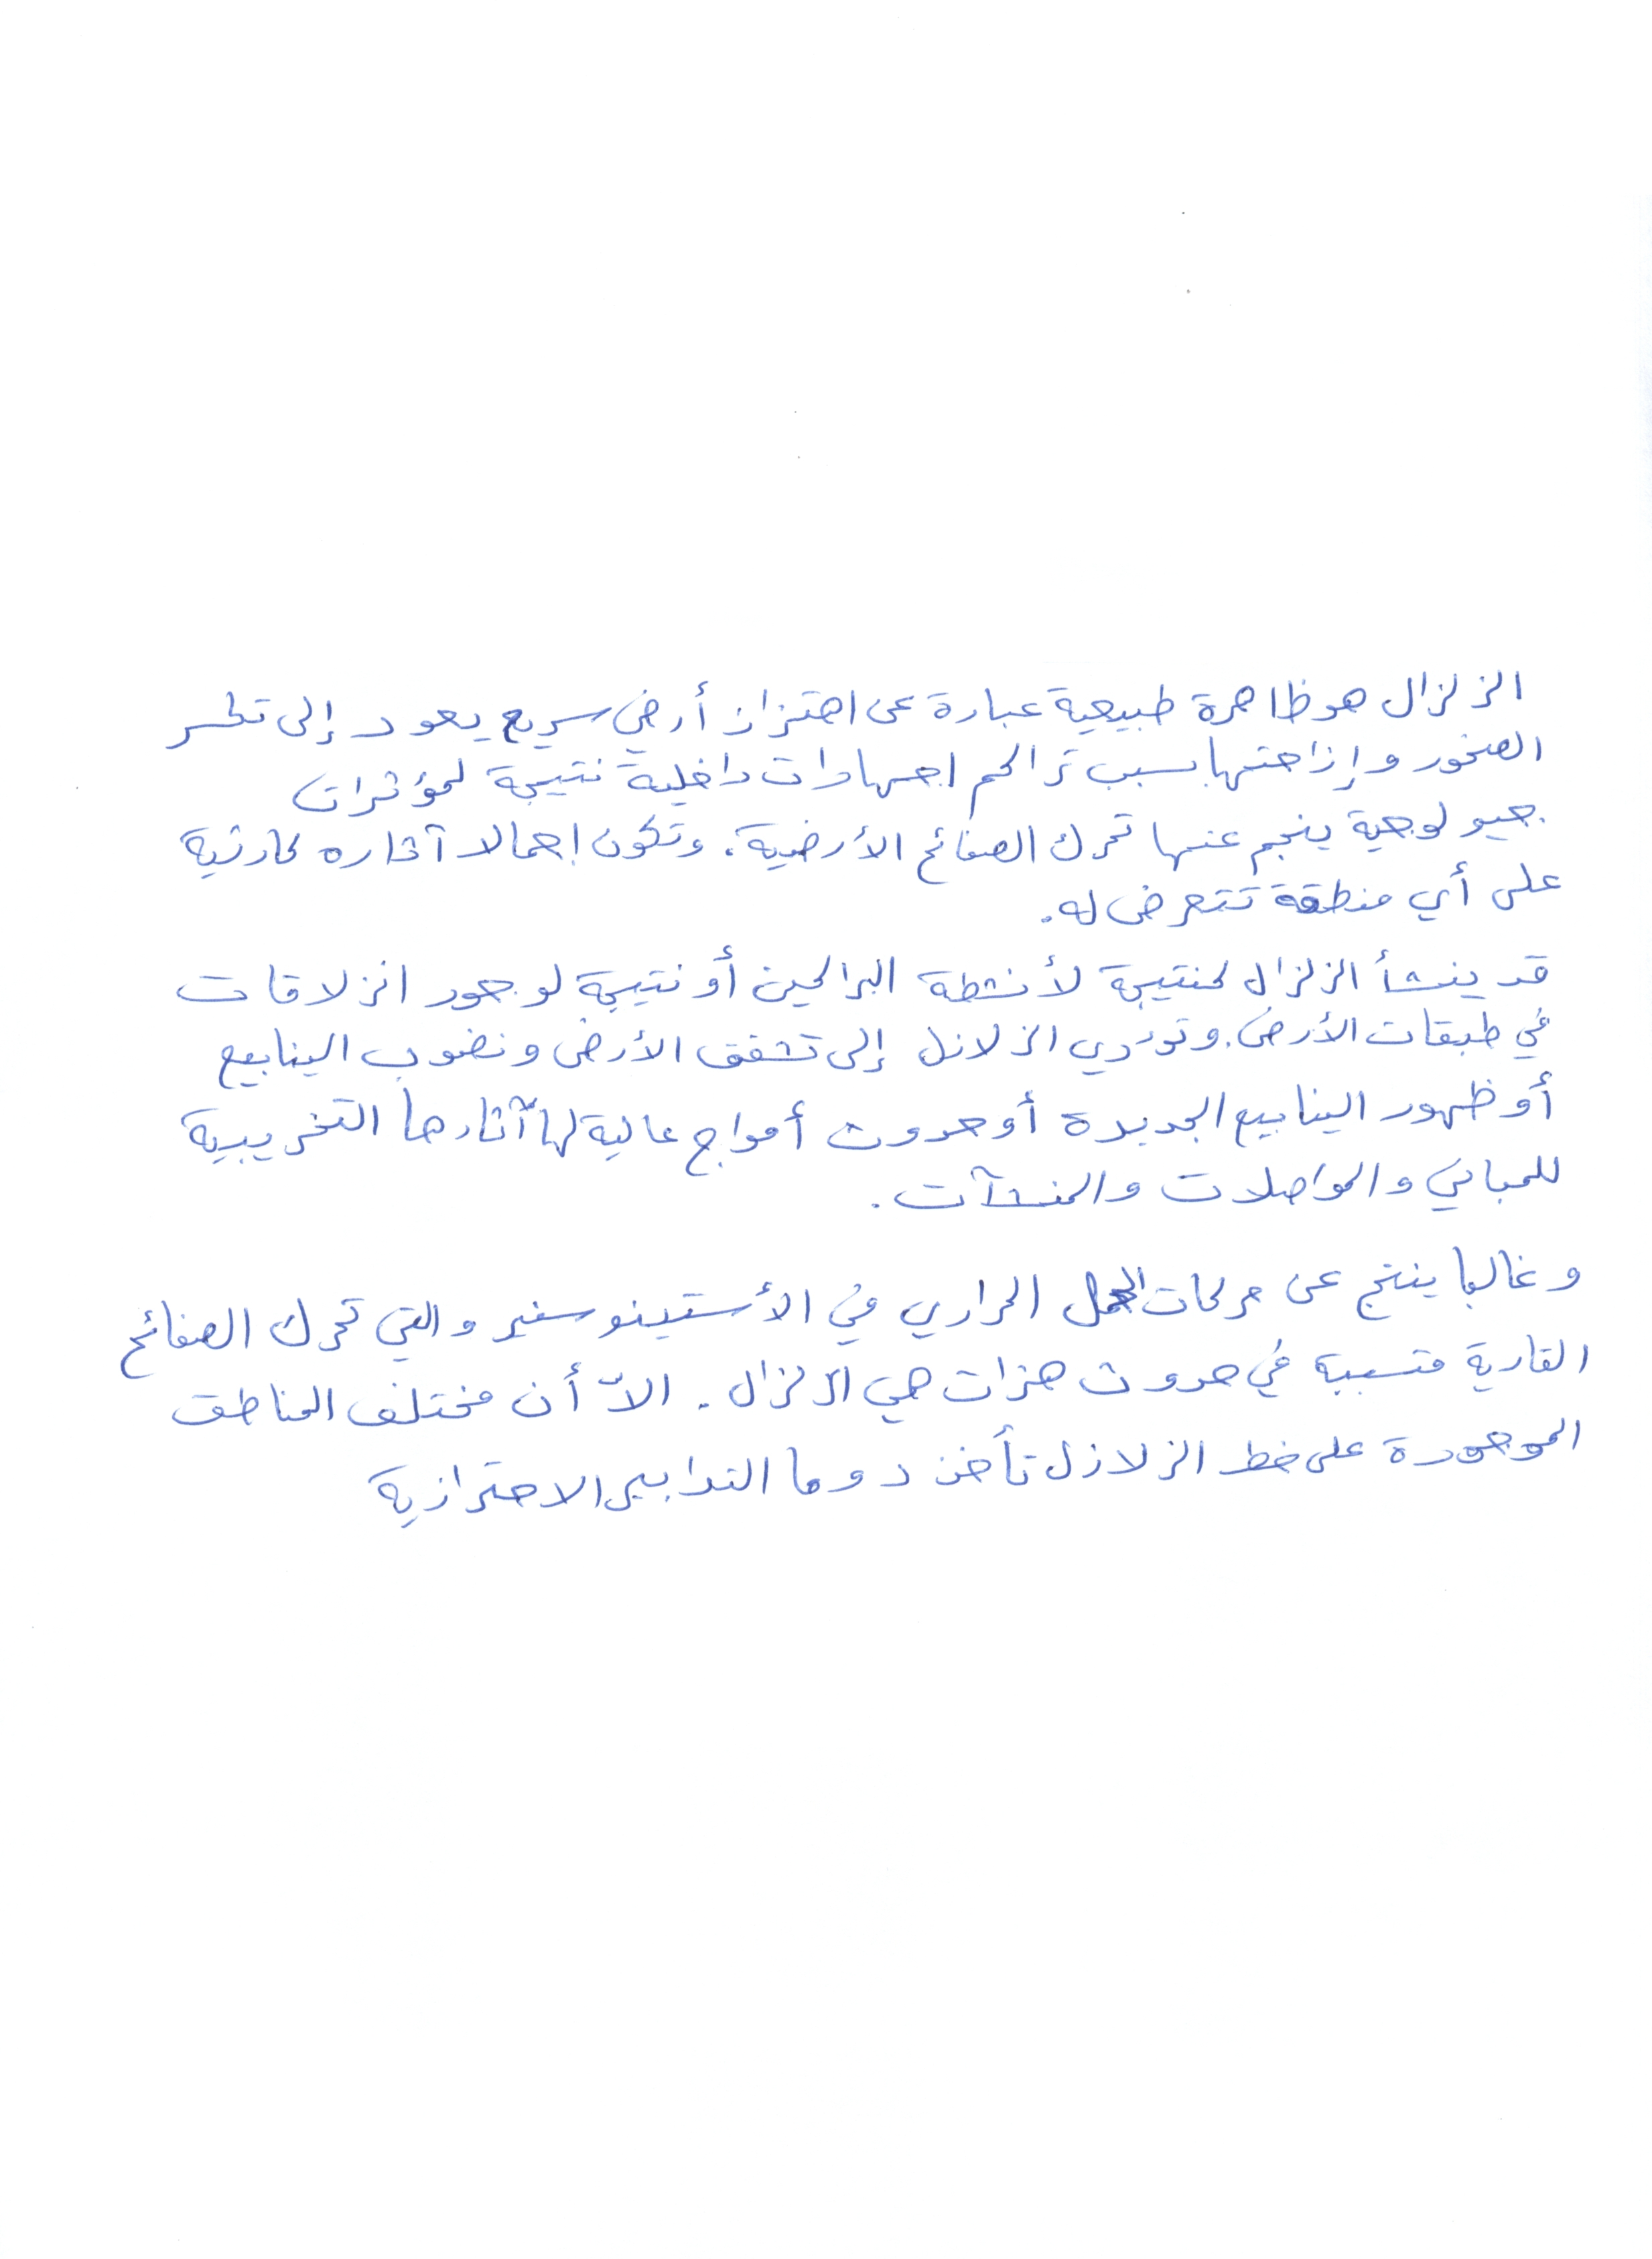 الزلزال هو ظاهرة طبيعية عبارة عن اهتزاز أرضي سريع يعود إلى تكسر
الصخور وإزاحتها بسبب تراكم اجهادات داخلية نتيجة لمؤثرات
جيولوجية ينجم عنها تحرك الصفائح الأرضية، وتكون إجمالا آثاره كارثية
على أي منطقة تتعرض له.
قد ينشأ الزلزال كنتيجة لأنشطة البراكين أو نتيجة لوجود انزلاقات
في طبقات الأرض. وتؤدي الزلازل إلى تشقق الأرض ونضوب الينابيع
أو ظهور الينابيع الجديدة أو حدوث أمواج عالية لها آثارها التخريبية
للمباني والمواصلات والمنشآت.
وغالبا ينتج عن حركات الحمل الحراري في الأستينوسفير والتي تحرك الصفائح
القارية متسببة في حدوث هزات هي الزلزال. الاّ أن مختلف المناطق
الموجودة على خط الزلازل تأخذ دوما التدابير الاحترازية